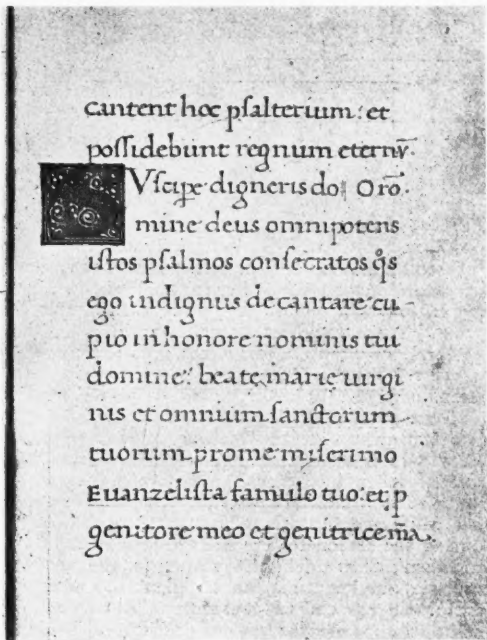 cantent hoc psalterium: et
possidebunt regnum eternū.
SVscipe digneris do Orō.
mine deus omnipotens
istos psalmos consecratos q̄s
ego indignus decantare cu
pio in honore nominis tui
domine: beate marie uirgi
nis et omnium sanctorum
tuorum pro me miserimo
Euanzelista famulo tuo: et p
genitore meo et genitrice m̄a.